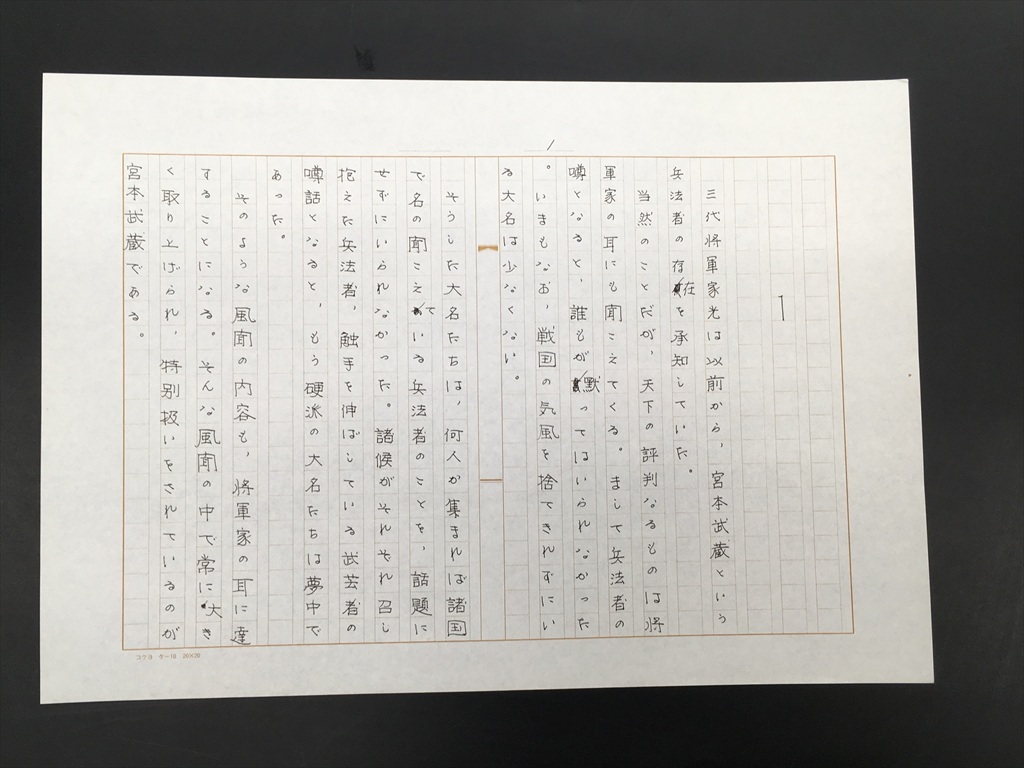 /
1
三代将軍家光は以前から、宮本武蔵という
兵法者の存在を承知していた。
当然のことだが、天下の評判なるものは将
軍家の耳にも聞こえてくる。まして兵法者の
噂となると、誰もが黙ってはいられなかった
。いまもなお、戦国の気風を捨てきれずにい
る大名は少なくない。
そうした大名たちは、何人か集まれば諸国
で名の聞こえている兵法者のことを、話題に
せずにいられなかった。諸候がそれぞれ召し
抱えた兵法者、触手を伸ばしている武芸者の
噂話となると、もう硬派の大名たちは夢中で
あった。
そのような風聞の内容も、将軍家の耳に達
することになる。そんな風聞の中で常に大き
く取り上げられ、特別扱いをされているのが
宮本武蔵である。
コクヨ ケー10 20×20